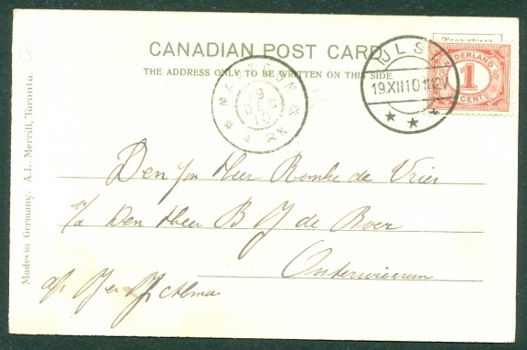 CANADIAN POST CARD
THE ADDRESS ONLY TO BE WRITTEN ON THIS SIDE.
IJLST
19 XII 10.1112V
NEDERLAND
1
CENT
MAKKUM
9
DEC
10
4-8N
Den Heer Romke de Vries
p/a Den Heer B J de Boer
Oosterwierum
Made in Germany. A.L. Merrill, Toronto.